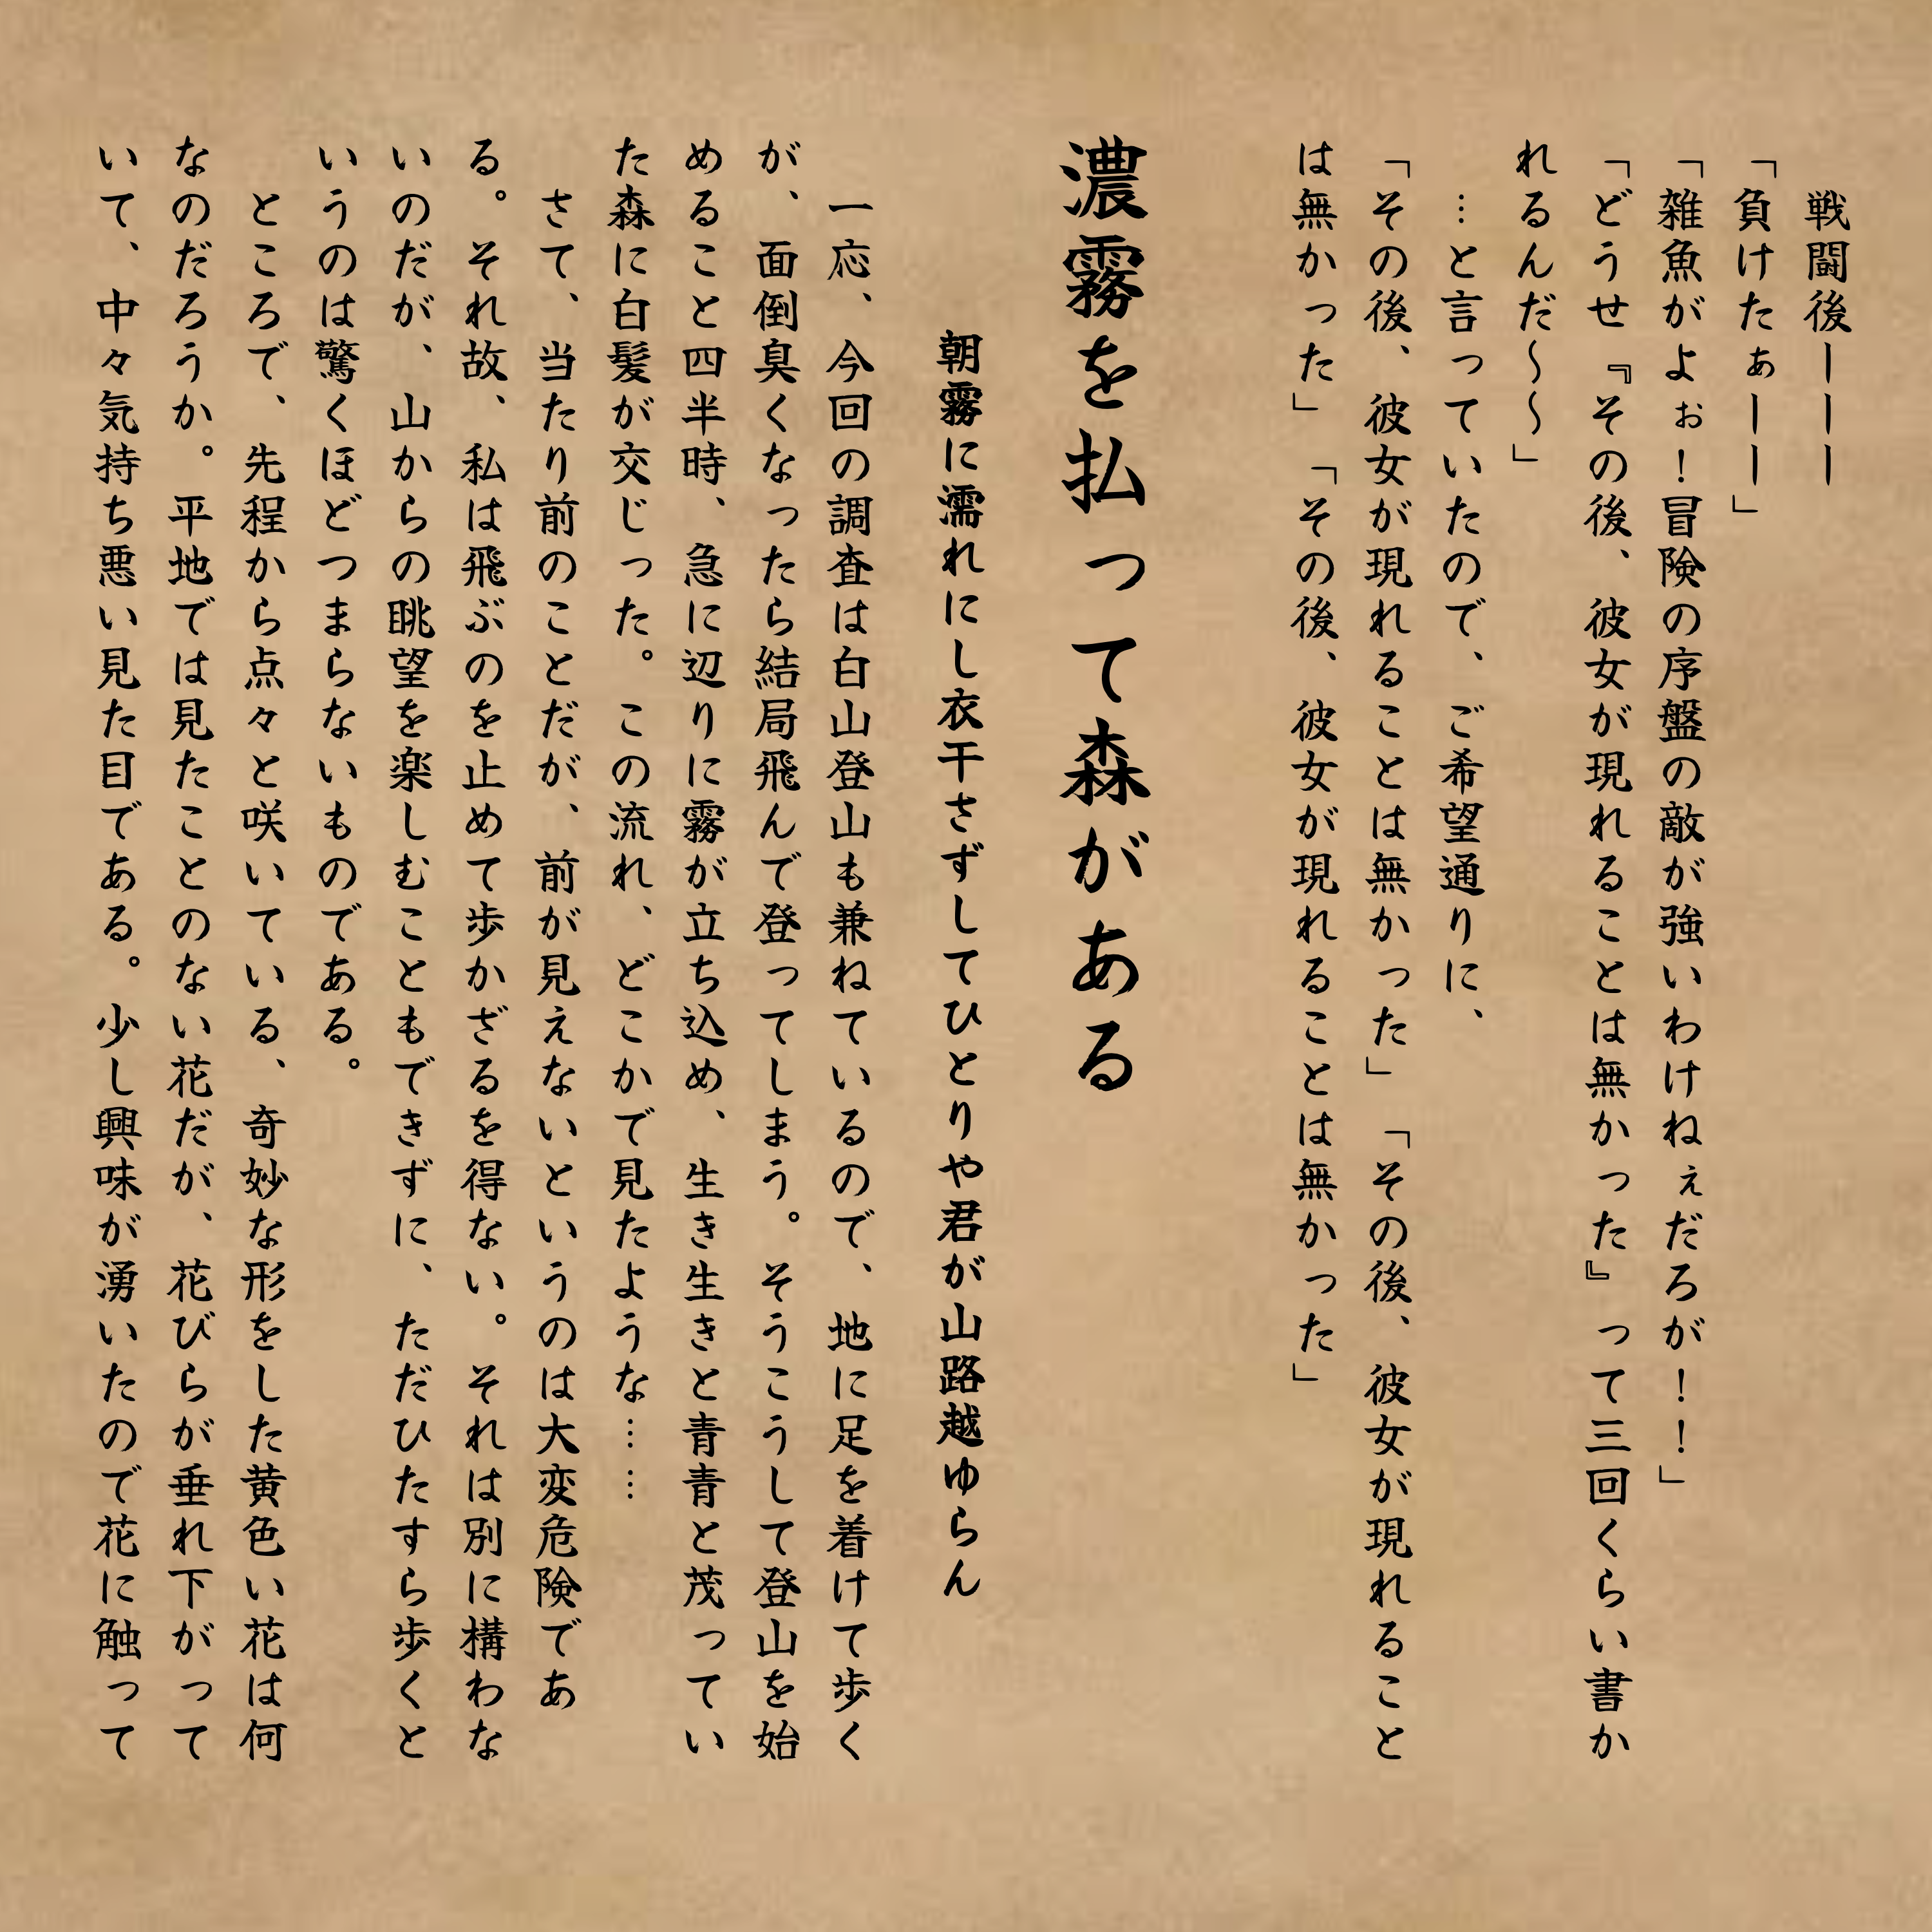 戦闘後ーーー
「負けたぁーー」
「雑魚がよぉ！冒険の序盤の敵が強いわけねぇだろが！！」
「どうせ『その後、彼女が現れることは無かった』って三回くらい書か
れるんだ～～」
…と言っていたので、ご希望通りに、
「その後、彼女が現れることは無かった」「その後、彼女が現れること
は無かった」「その後、彼女が現れることは無かった」
濃霧を払って森がある
朝霧に濡れにし衣干さずしてひとりや君が山路越ゆらん
一応、今回の調査は白山登山も兼ねているので、地に足を着けて歩く
が、面倒臭くなったら結局飛んで登ってしまう。そうこうして登山を始
めること四半時、急に辺りに霧が立ち込め、生き生きと青青と茂ってい
た森に白髪が交じった。この流れ、どこかで見たような……
さて、当たり前のことだが、前が見えないというのは大変危険であ
る。それ故、私は飛ぶのを止めて歩かざるを得ない。それは別に構わな
いのだが、山からの眺望を楽しむこともできずに、ただひたすら歩くと
いうのは驚くほどつまらないものである。
ところで、先程から点々と咲いている、奇妙な形をした黄色い花は何
なのだろうか。平地では見たことのない花だが、花びらが垂れ下がって
いて、中々気持ち悪い見た目である。少し興味が湧いたので花に触って